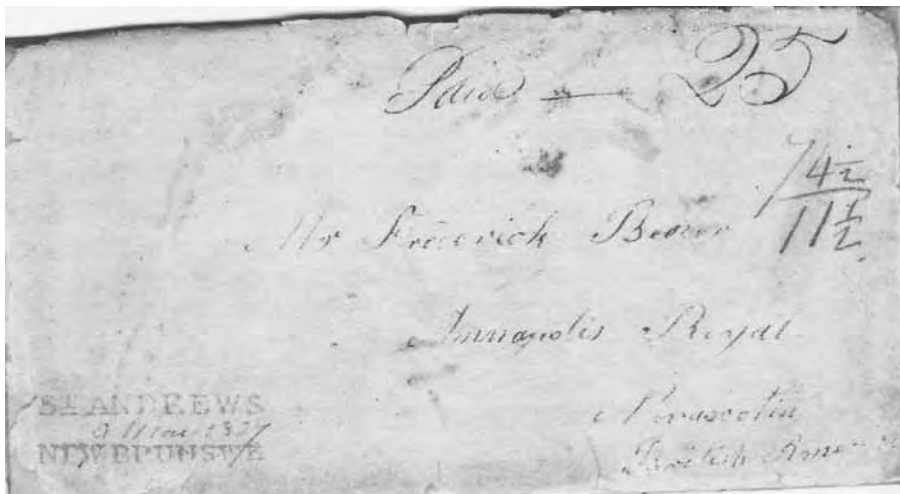 Paid — 25
/4½
11½
Mr Frederick
Annapolis Royal
Novascotia
British
ST ANDREWS
May
NEW BRUNSWK